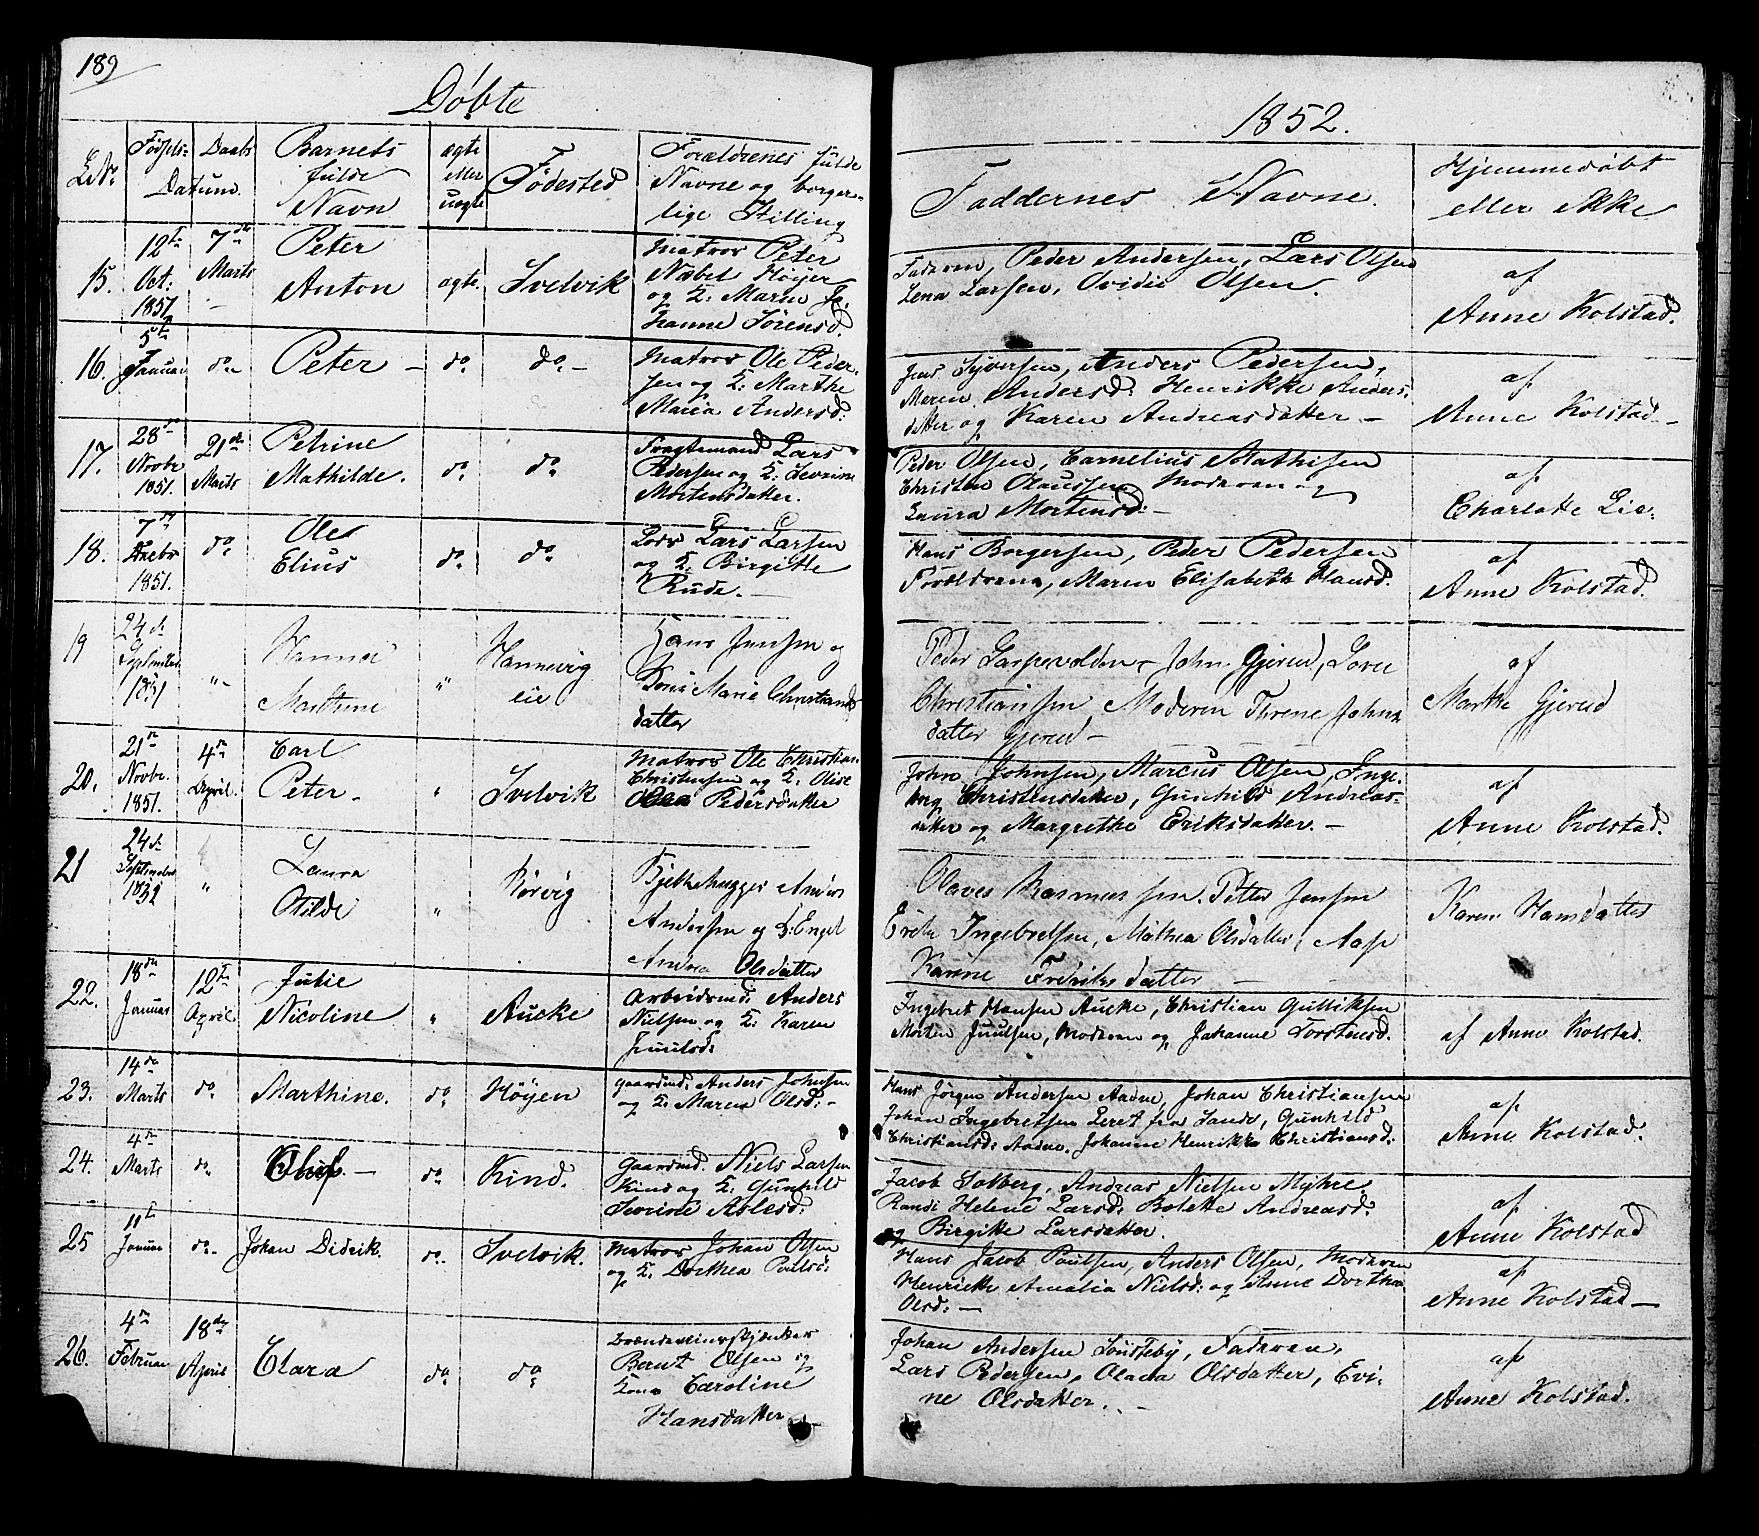 189
Døbte
1852.
L.N.
Fødsels-
Daabs
Datum.
Barnets
fulde
Navn
ægte
eller
uægte
Fødested
Forældrenes fulde
Navne og borger-
lige Stilling
Faddernes Navne.
Hjemmedøbt
eller ikke
15.
12te
Oct:
1851
7de
Marts
Peter
Anton
ægte.
Svelvik
Matros Peter
Næbel Høyer
og K: Maren Jo-
hanne Sørensd.
Faderen, Peder Andersen, Lars Olsen
Lena Larsen, Ovidie Olsen.
af
Anne Kolstad.
16.
5te
Januar
do
Peter –
do
do –
Matros Ole Peder-
sen og K: Marthe
Maria Andersd:
Jens Syversen, Anders Pedersen,
Maren Andersd: Henrikke Anders-
datter og Karen Andreasdatter –
af
Anne Kolstad –
17.
28de
Novbr
1851.
21de
Marts
Petrine
Mathilde.
do
do
Fragtemand Lars
Pedersen og K: Severine
Mortensdatter.
Peder Olsen, Carnelius Mathisen
Christen Olaussen, Moderen og
Laura Mortensd: –
af
Charlotte Lie:
18.
7de
Decbr
1851.
do
Ole
Elius
do
do
Lods Lars Larsen
og K: Birgitte
Rude. –
Hans Borgersen, Peder Pedersen
Forældrene, Maren Elisabeth Hansd:
af
Anne Kolstad.
19
24de
September
1851
"
Hanna
Marthine
"
Hannevig
eie
Hans Jensen og
Marie Christians
datter
Peder – John Gjerud,
Christiansen Moderen Thrine Johns
datter Gjerud –
af
Marthe Gjerud
20.
21de
Novbr.
1851.
4de
April
Carl
Peter –
"
Svelvik
Matros Ole Christian
Christensen og K: Olise
Olea Pedersdatter
Johan Johnsen, Marcus Olsen, Inge-
borg Christensdatter, Gunhild Andreas-
datter og Margrethe Eriksdatter. –
af
Anne Kolstad.
21
24de
September
"
Laura
Otilde
"
Rørvig
Bjelkehugger Anders
Andersen og K: Engel
Andrea Olsdatter
Olaves Rasmussen. Petter Jensen
Ingebretsen, Mathea Olsdatter,
Karine Fredriks datter –
Karen Hansdatter
22.
18de
Januar
12te
April
Julie
Nicoline
"
Aucke
Arbeidsmd. Anders
Nielsen og K: Karen
Juulsd:
Ingebret Hansen Aucke, Christian Gulliksen
Morten Juulsen, Moderen og Johanne Torstensd.
af Anne Kolstad.
23.
14de
Marts
do
Marthine.
do
Høyen
Gaardmd: Anders Johnsen
og K: Maren Olsd: –
Hans Jørgen Andersen Aadne, Johan Christiansen
Johan Ingebretsen Leret fra Sande, Gunhild
Christiansd: Aadne, Johanne Henrikke Christiansd:
af
Anne Kolstad.
24.
4de
Marts
do
Oluf –
do
Kind.
Gaardmd. Niels Larsen
Kind og K: Gunhild
Severine Aslesd:
Jacob Solberg, Andreas Nielsen Myhre
Randi Helene Larsd: Bolette Andreasd:
og Birgitte Larsdatter.
af
Anne Kolstad
25
11te
Januar
do –
Johan Didrik.
do.
Svelvik.
Matros Johan Olsen
og K: Dorthea Poulsd:
Hans Jacob Poulsen, Anders Olsen, Moderen
Henriette Amalia Nielsd: og Anne Dorthea
Olsd: –
af
Anne Kolstad –
26.
4de
Februar
18de
April
Clara
do
do
Brændeviinsskjænker
Bernt Olsen og
Kone Caroline
Hansdatter –
Johan Andersen Tønsteby, Faderen,
Lars Pedersen, Olava Olsdatter, Evi-
ne Olsdatter. –
af
Anne Kolstad.